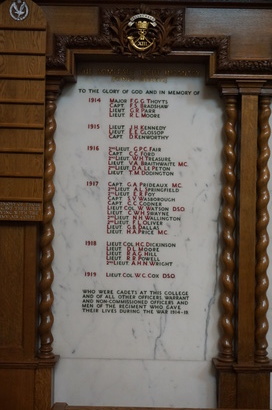 TO THE GLORY OF GOD AND IN MEMORY OF
1914 MAJOR F.G.G. THOYTS
CAPT. F.S. BRADSHAW
LIEUT G.R. PARR
LIEUT R.L. MOORE
1915 LIEUT J.H. KENNEDY
LIEUT E.E. GLOSSOP
CAPT D. KENWORTHY
1916 2ND LIEUT G.P.C. FAIR
CAPT C.C. FORD
2ND LIEUT W.H. TREASURE
LIEUT V.A. BRAITHWAITE M.C.
2ND LIEUT D.A. LE PEYTON
LIEUT T.M. DODINGTON
1917 CAPT G.A. PRIDEAUX M.C.
2ND LIEUT A.L. SPRINGFIELD
2ND LIEUT E.R. FOY
CAPT S.V. WASBOROUGH
CAPT C.C. GOONER
LIEUT COL W. WATSON D.S.O.
LIEUT C.W.H. SWAYNE
2ND LIEUT N.H. WALLINGTON
2ND LIEUT F.L. OLIVER
LIEUT G.B. DALLAS
LIEUT H.A. PRICE M.C.
1918 LIEUT COL H.C. DICKINSON
LIEUT D.L. MOORE
LIEUT R.G. HILL
LIEUT R.R. POWELL
2ND LIEUT A.H.N. WRIGHT
1919 LIEUT COL W.C. COX D.S.O.
WHO WERE CADETS AT THIS COLLEGE
AND OF ALL OTHER OFFICERS WARRANT
AND NON-COMMISSIONED OFFICERS AND
MEN OF THE REGIMENT WHO GAVE
THEIR LIVES DURING THE WAR 1914-18